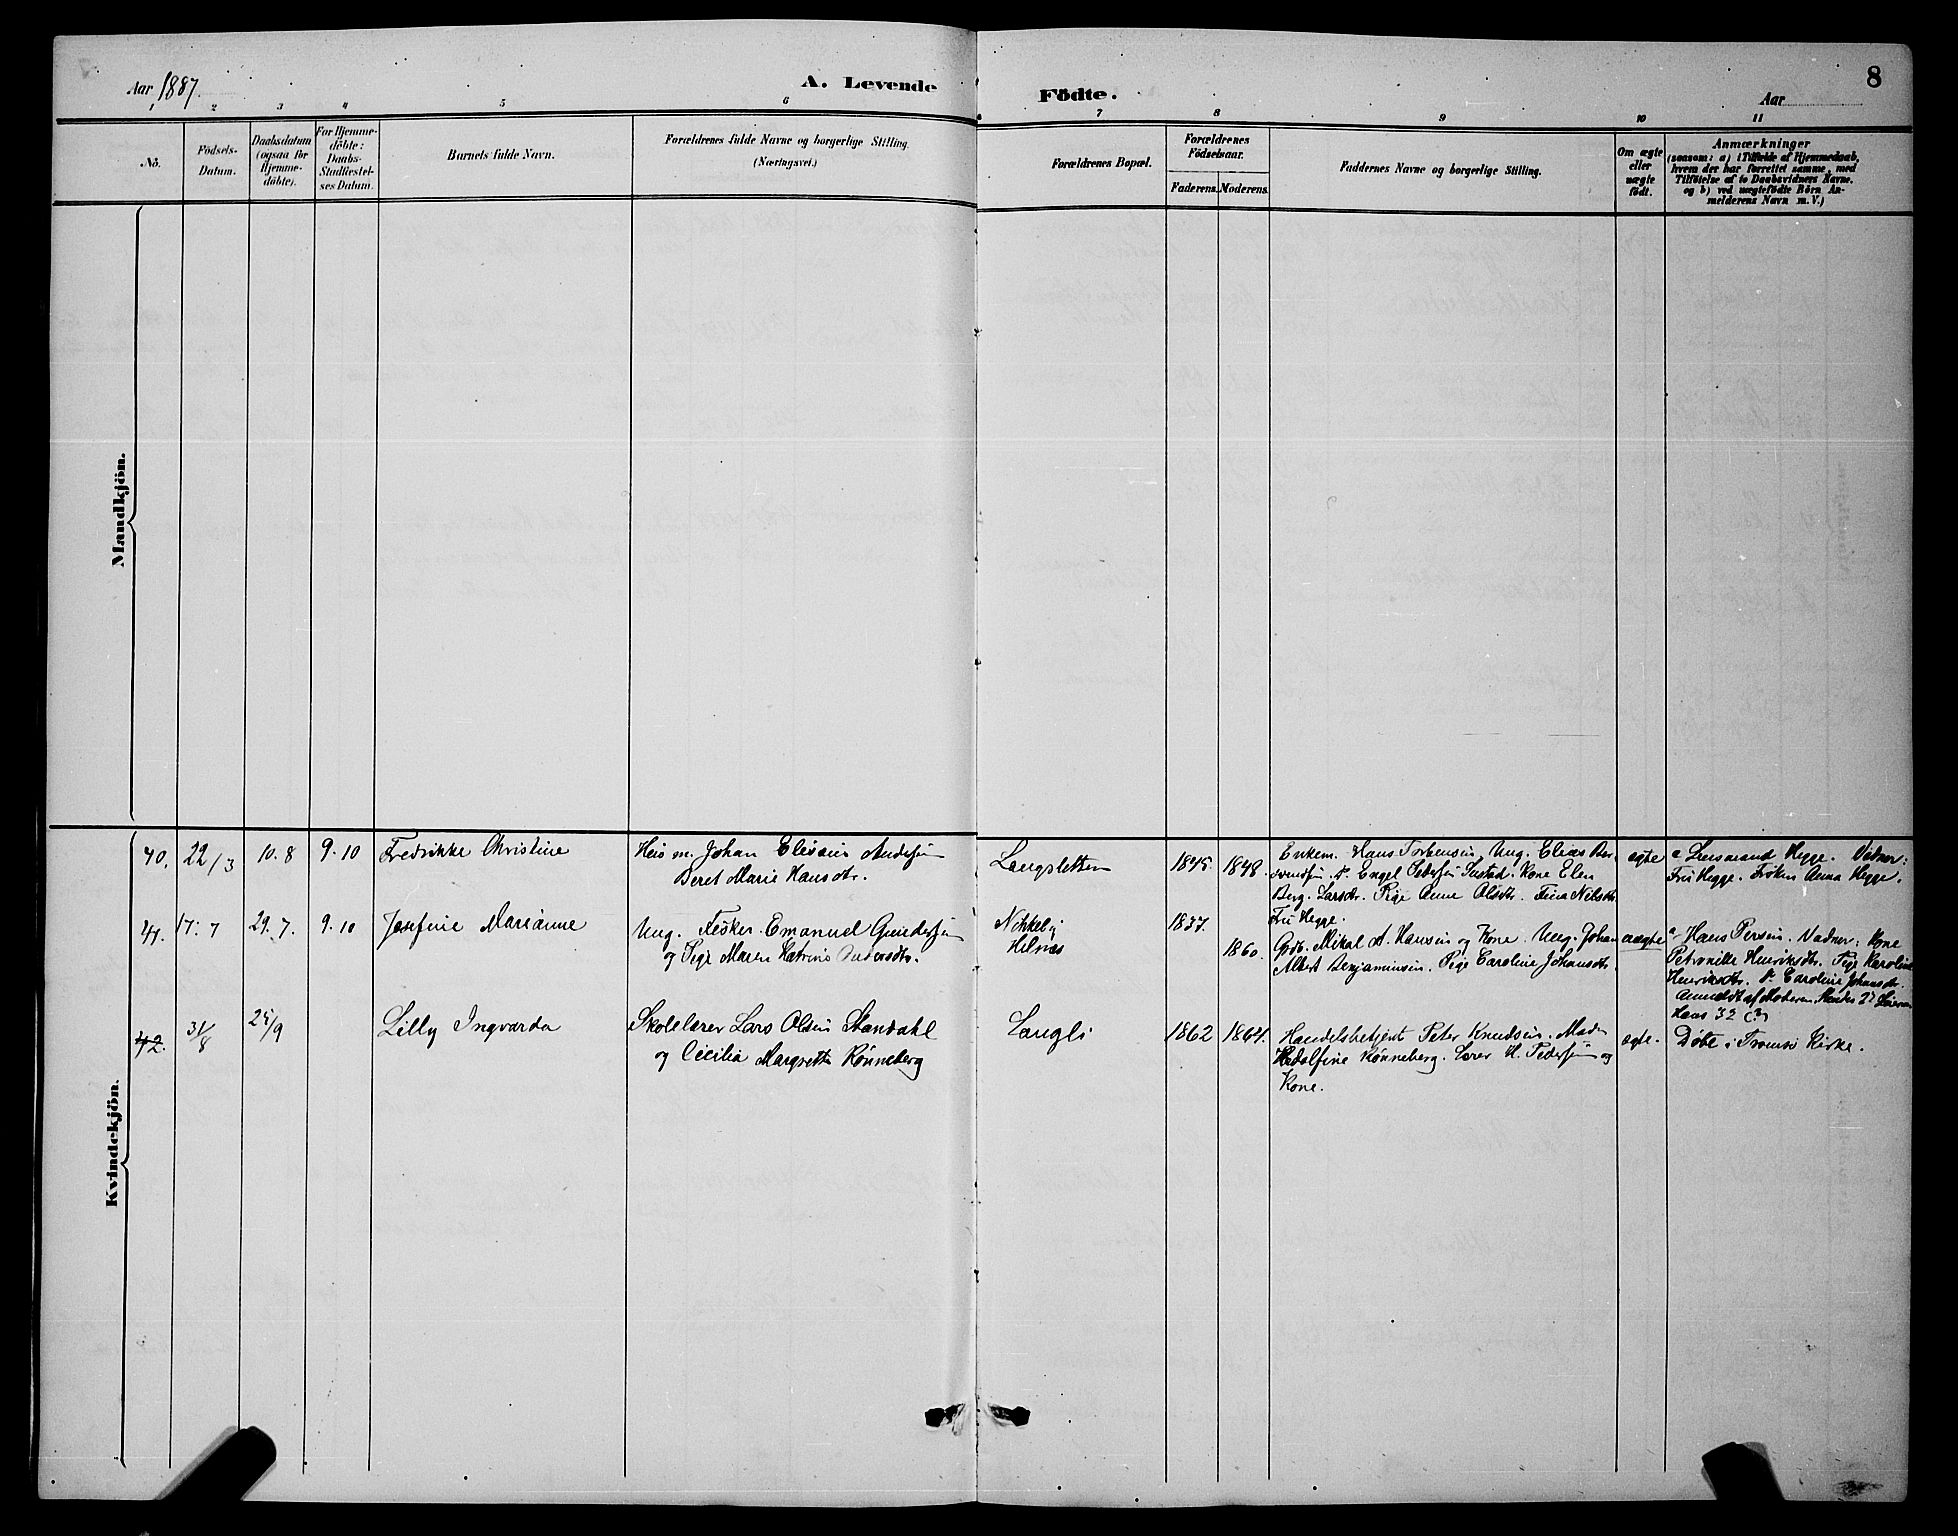 Aar 1887.
A. Levende Födte.
Aar
8
1 2 3 4 5 6 7 8 9 10 11
Nö.
Födsels-
Datum.
Daabsdatum
(ogsaa for
Hjemme-
döbte).
For Hjemme-
döbte:
Daabs-
Stadfæstel-
ses Datum.
Barnets fulde Navn.
Forældrenes fulde Navne og borgerlige Stilling.
(Næringsvei.)
Forældrenes Bopæl.
Forældrenes
Födselsaar.
Faderens. Moderens.
Faddernes Navne og borgerlige Stilling.
Om ægte
eller
uægte
födt.
Anmærkninger
(saasom: a) i Tilfælde af Hjemmedaab,
hvem der har forrettet samme, med
Tilföielse af to Daabsvidners Navne,
og b) ved uægtefödte Börn An-
melderens Navn m. V.)
Mandkjön.
Kvindekjön.
40.
22/3
10. 8
9. 10
Fredrikke Christine
Johan Andersen
Beret Marie Hansdtr.
Langsletten
1845. 1848.
Enkem. Hans Torbensen, Ung. Elias
Engel Pedersen Kone Elen
Berg. Larsdtr. Pige Anne Olsdtr. Tina Nilsdtr.
Fru Hegge.
ægte
a Lensmand Hegge. Vidner:
Fru Hegge. Frøken Anna Hegge.
41.
17. 7
29. 7.
9. 10
Josefine Marianne
Ung. Fisker. Emanuel Gundersen
og Pige Maren Katrine Andersdtr.
Nikkeby
Helnæs
1837.
1860.
Gdb. Mikal A. Hansen og Kone. Ung. Johan
Albert Benjaminsen. Pige Caroline Johansdtr.
uægte
a Hans Persen. Vidner: Kone
Petronille Henriksdtr. Pige Karoline
Henriksdtr. Caroline Johansdtr.
Anmeldt af Moderen
Hans 32 (3)
42.
31/8
25/9
Lilly Ingvarda
Skolelærer Lars Olsen Standahl
og Cecilia Margrethe Rönneberg
Langli
1862 1864.
Handelsbetjent Peter Knudsen. Mad.
Rønneberg. Lærer H. Pedersen og
Kone.
ægte.
Döbt i Tromsö Kirke.